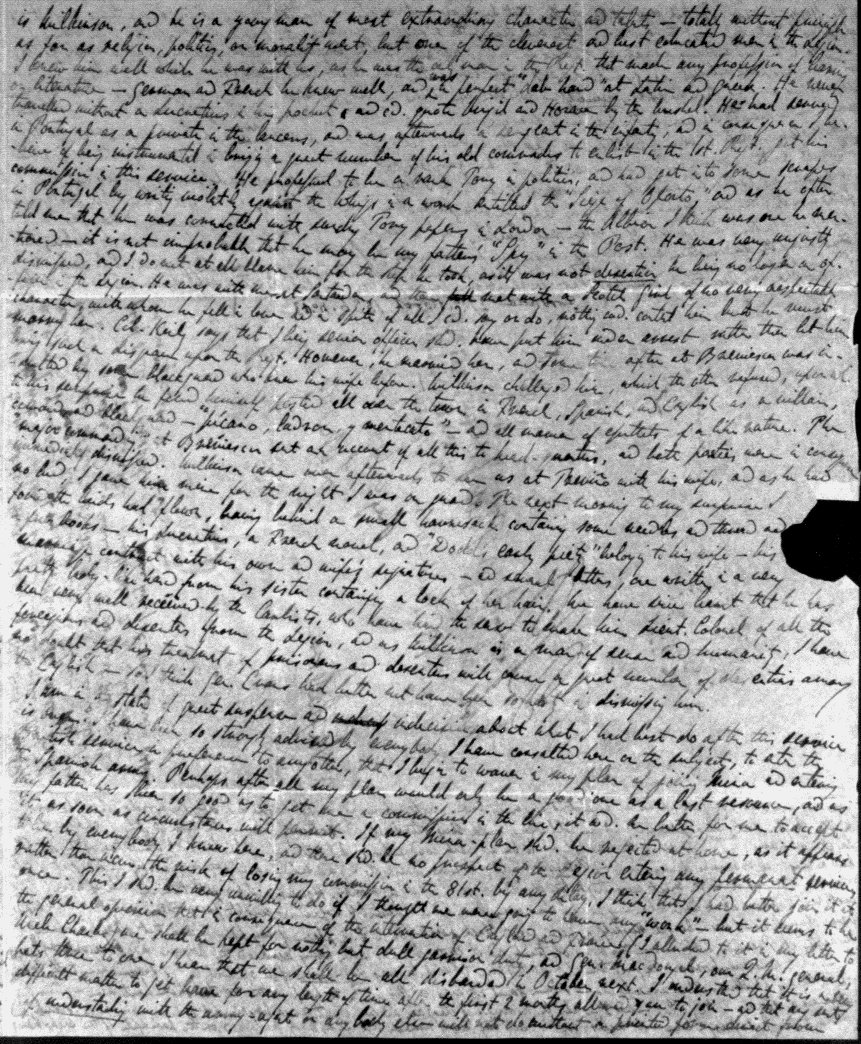 is Wilkinson, and he is a young man of most extraordinary character and talent – totally without principle
as far as religion, politics, or morality went, but one of the cleverest and best educated men in the Legion.
I knew him well while he was with us, as he was the only man in the Regt. that made any profession of learning
or literature – German and French he knew well, and was a perfect "dab hand" at Latin and Greek. He never
travelled without a Lucretius in his pocket & and cd. quote Virgil and Horace by the bushel. He had served
in Portugal as a private in the Lancers, and was afterwards a sergeant in the infantry, and in consequence of
having been instrumental in bringing a great number of his old comrades to enlist in the 1st. Regt. got his
commission in this service. He professed to be a rank Tory in politics, and had got into some scrapes
in Portugal by writing violently against the Whigs in a work entitled the "Siege of Oporto," and as he often
told me that he was connected with sundry Tory papers in London – the Albion I think was one he men-
-tioned – it is not improbable that he may be my father's "Spy" in the Post. He was very unjustly
dismissed, and I do not at all blame him for the step he took, as it was not desertion he being no longer an of-
-ficer in the Legion. He was with me at Santander, and there met with a Scotch girl of no very respectable
character with whom he fell in love and in spite of all I cd. say or do, nothing wd. content him but he must
marry her. Col. Kirby says that I being senior officer shd. have put him under arrest rather than let him
bring such a disgrace upon the Regt. However, he married her, and some time after at was in-
-sulted by some blackguard who knew his wife before. Wilkinson challenged him, which the other refused, upon
to his surprise he found himself posted all over the town in French, Spanish, and English as a villain,
coward and blackguard – "picaro, ladron, y mentecato" – and all manner of epithets of a like nature. The
major commanding at sent an account of all this to head-quarters, and both parties were in conse-
immediately dismissed. Wilkinson came over afterwards to see us at Trevino with his wife, and as he had
no bed I gave him mine for the night I was on guard. The next morning to my surprise I
found the birds had flown, leaving behind a small haversack containing some needles and thread and
a few books – his Lucretius, a French novel, and "Dodd's early piety" belonging to his wife – his
marriage contract with his own and wife's signatures – and several letters, one written in a very
pretty lady-like hand from his sister containing a lock of her hair. We have since heard that he has
been very well received by the Carlists, who have had the sense to make him Lieut. Colonel of all the
foreigners and deserters from the Legion, and as Wilkinson is a man of sense and humanity, I have
no doubt that his treatment of prisoners and deserters will cause a great number of desertions among
the English – so I think Gen. Evans had better not have been so about dismissing him.
I am in a state of great suspense and indecision about what I had best do after this service
is over. I have been so strongly advised by everybody I have consulted here on the subject, to enter the
British service in preference to any other, that I begin to waver in my plan of joining Mina and entering
the Spanish army. Perhaps after all my plan would only be a good one as a last resource, and as
my father has been so good as to get me a commission in the line, it wd. be better for me to accept
it as soon as circumstances will permit. If my Mina-plan shd. be rejected at home, as it appears
to be by everybody I know here, and there shd. be no prospect of the Legion entering any permanent service,
rather than incur the risk of losing my commission in the 81st. by any delay, I think that I had better join it at
once. This I shd. be very unwilling to do if I thought we were going to have any "work" – but it seems to be
the general opinion that in consequence of the intervention of England and France (I alluded to it in my letter to
Uncle Charles) we shall be kept for nothing but dull garrison duty, and Genl. Macdougal, our Q.M. general
bets three to one I hear that we shall be all disbanded in October next. I understand that it is a very
difficult matter to get leave for any length of time after the first 2 months allowed you to join – and that any sort
of understanding with the army-agent or any body else will not do